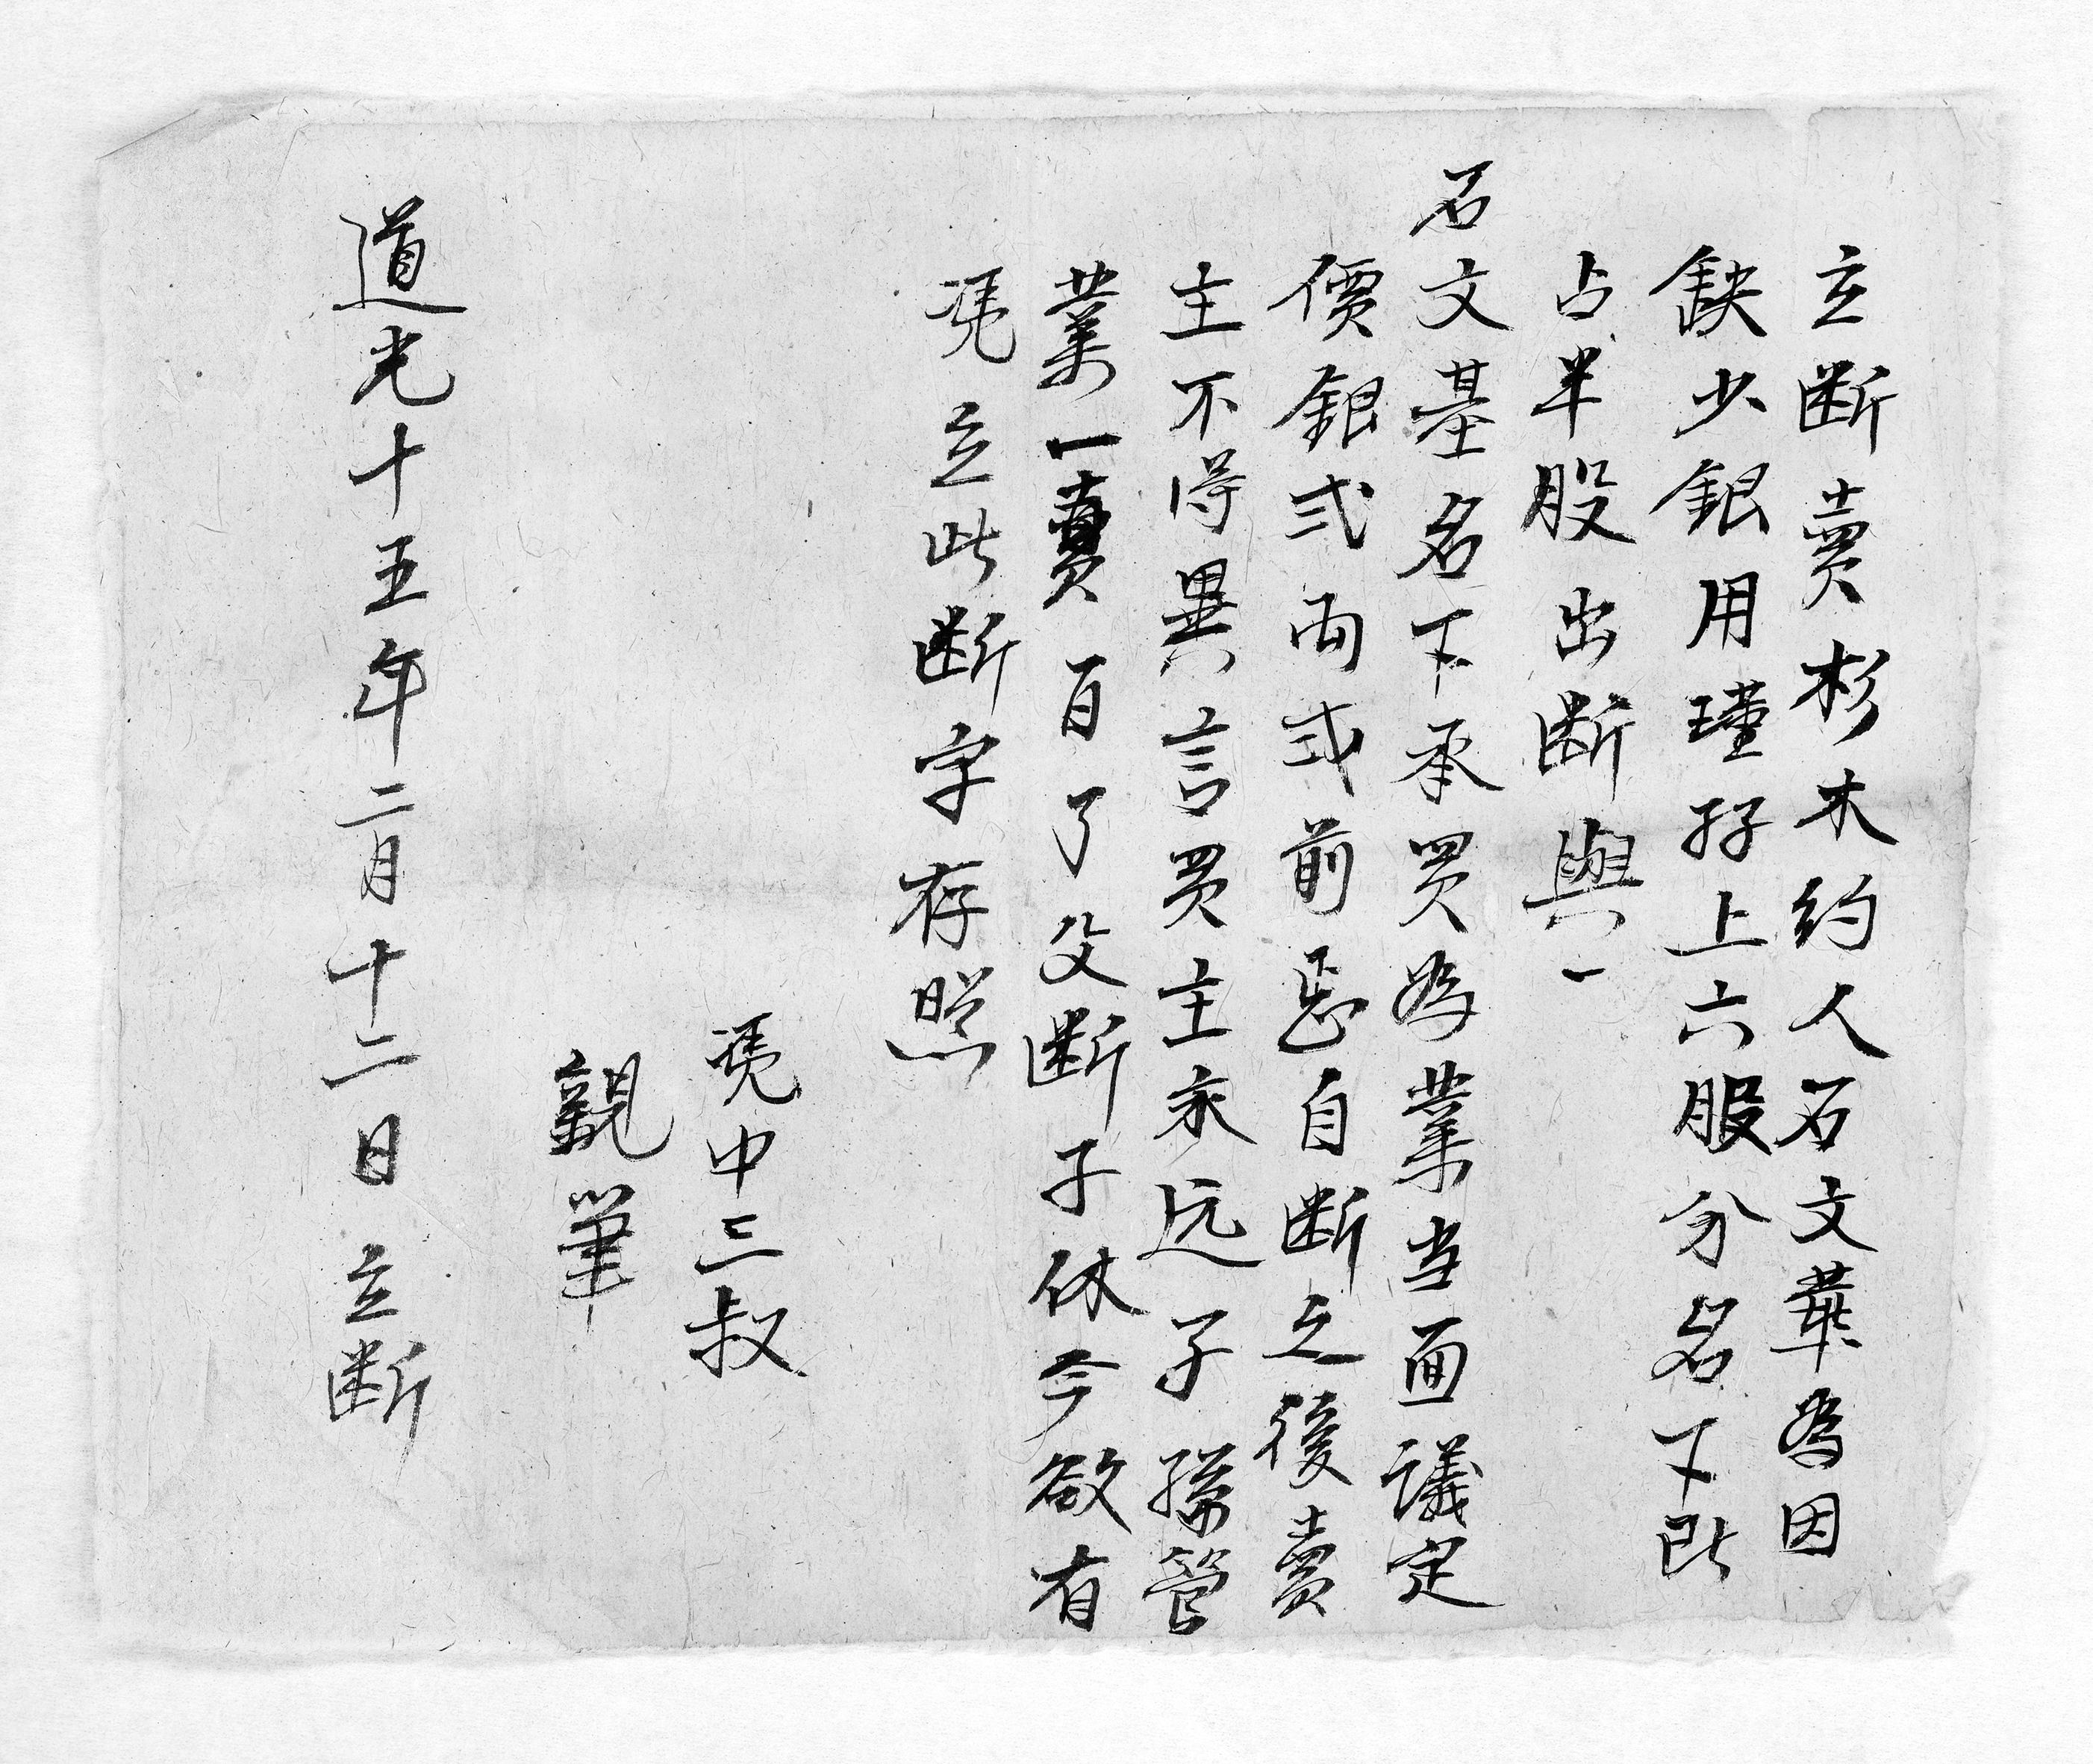 立断賣杉木約人石文華為因
缺少銀用瑾孖上六服分名下此
占半股出断與一
石文基名下承買為業当面議定
價銀弍両弍前忌自断之後賣
主不得異言買主永远子孫管
業一賣百了父断子休今欲有
凴立此断字存照
凴中三叔
親筆
道光十五年二月十二日立断